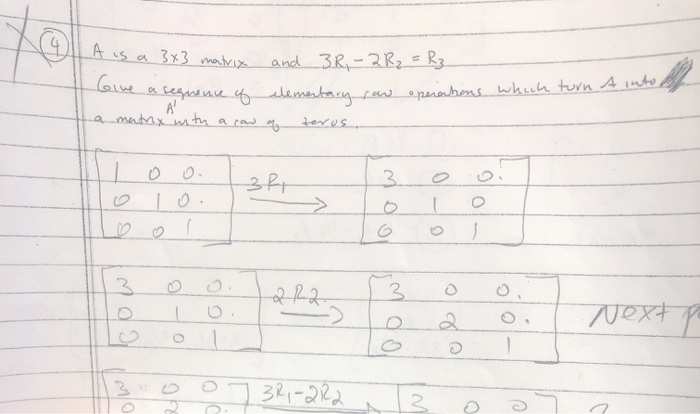 4 A is a 3x3 matrix and 3R₁ - 2R₂ = R₃
Give a sequence of elementary row operations which turn A into
a matrix A' with a row of zeros.
1 0 0. 3R₁ 3 0 0.
0 1 0. → 0 1 0
0 0 1 0 0 1
3 0 0. 2R2. 3 0 0.
0 1 0. → 0 2 0. Next
0 0 1 0 0 1
3 0 0 3R₁-2R₂ 3 0 0
0 2 0.